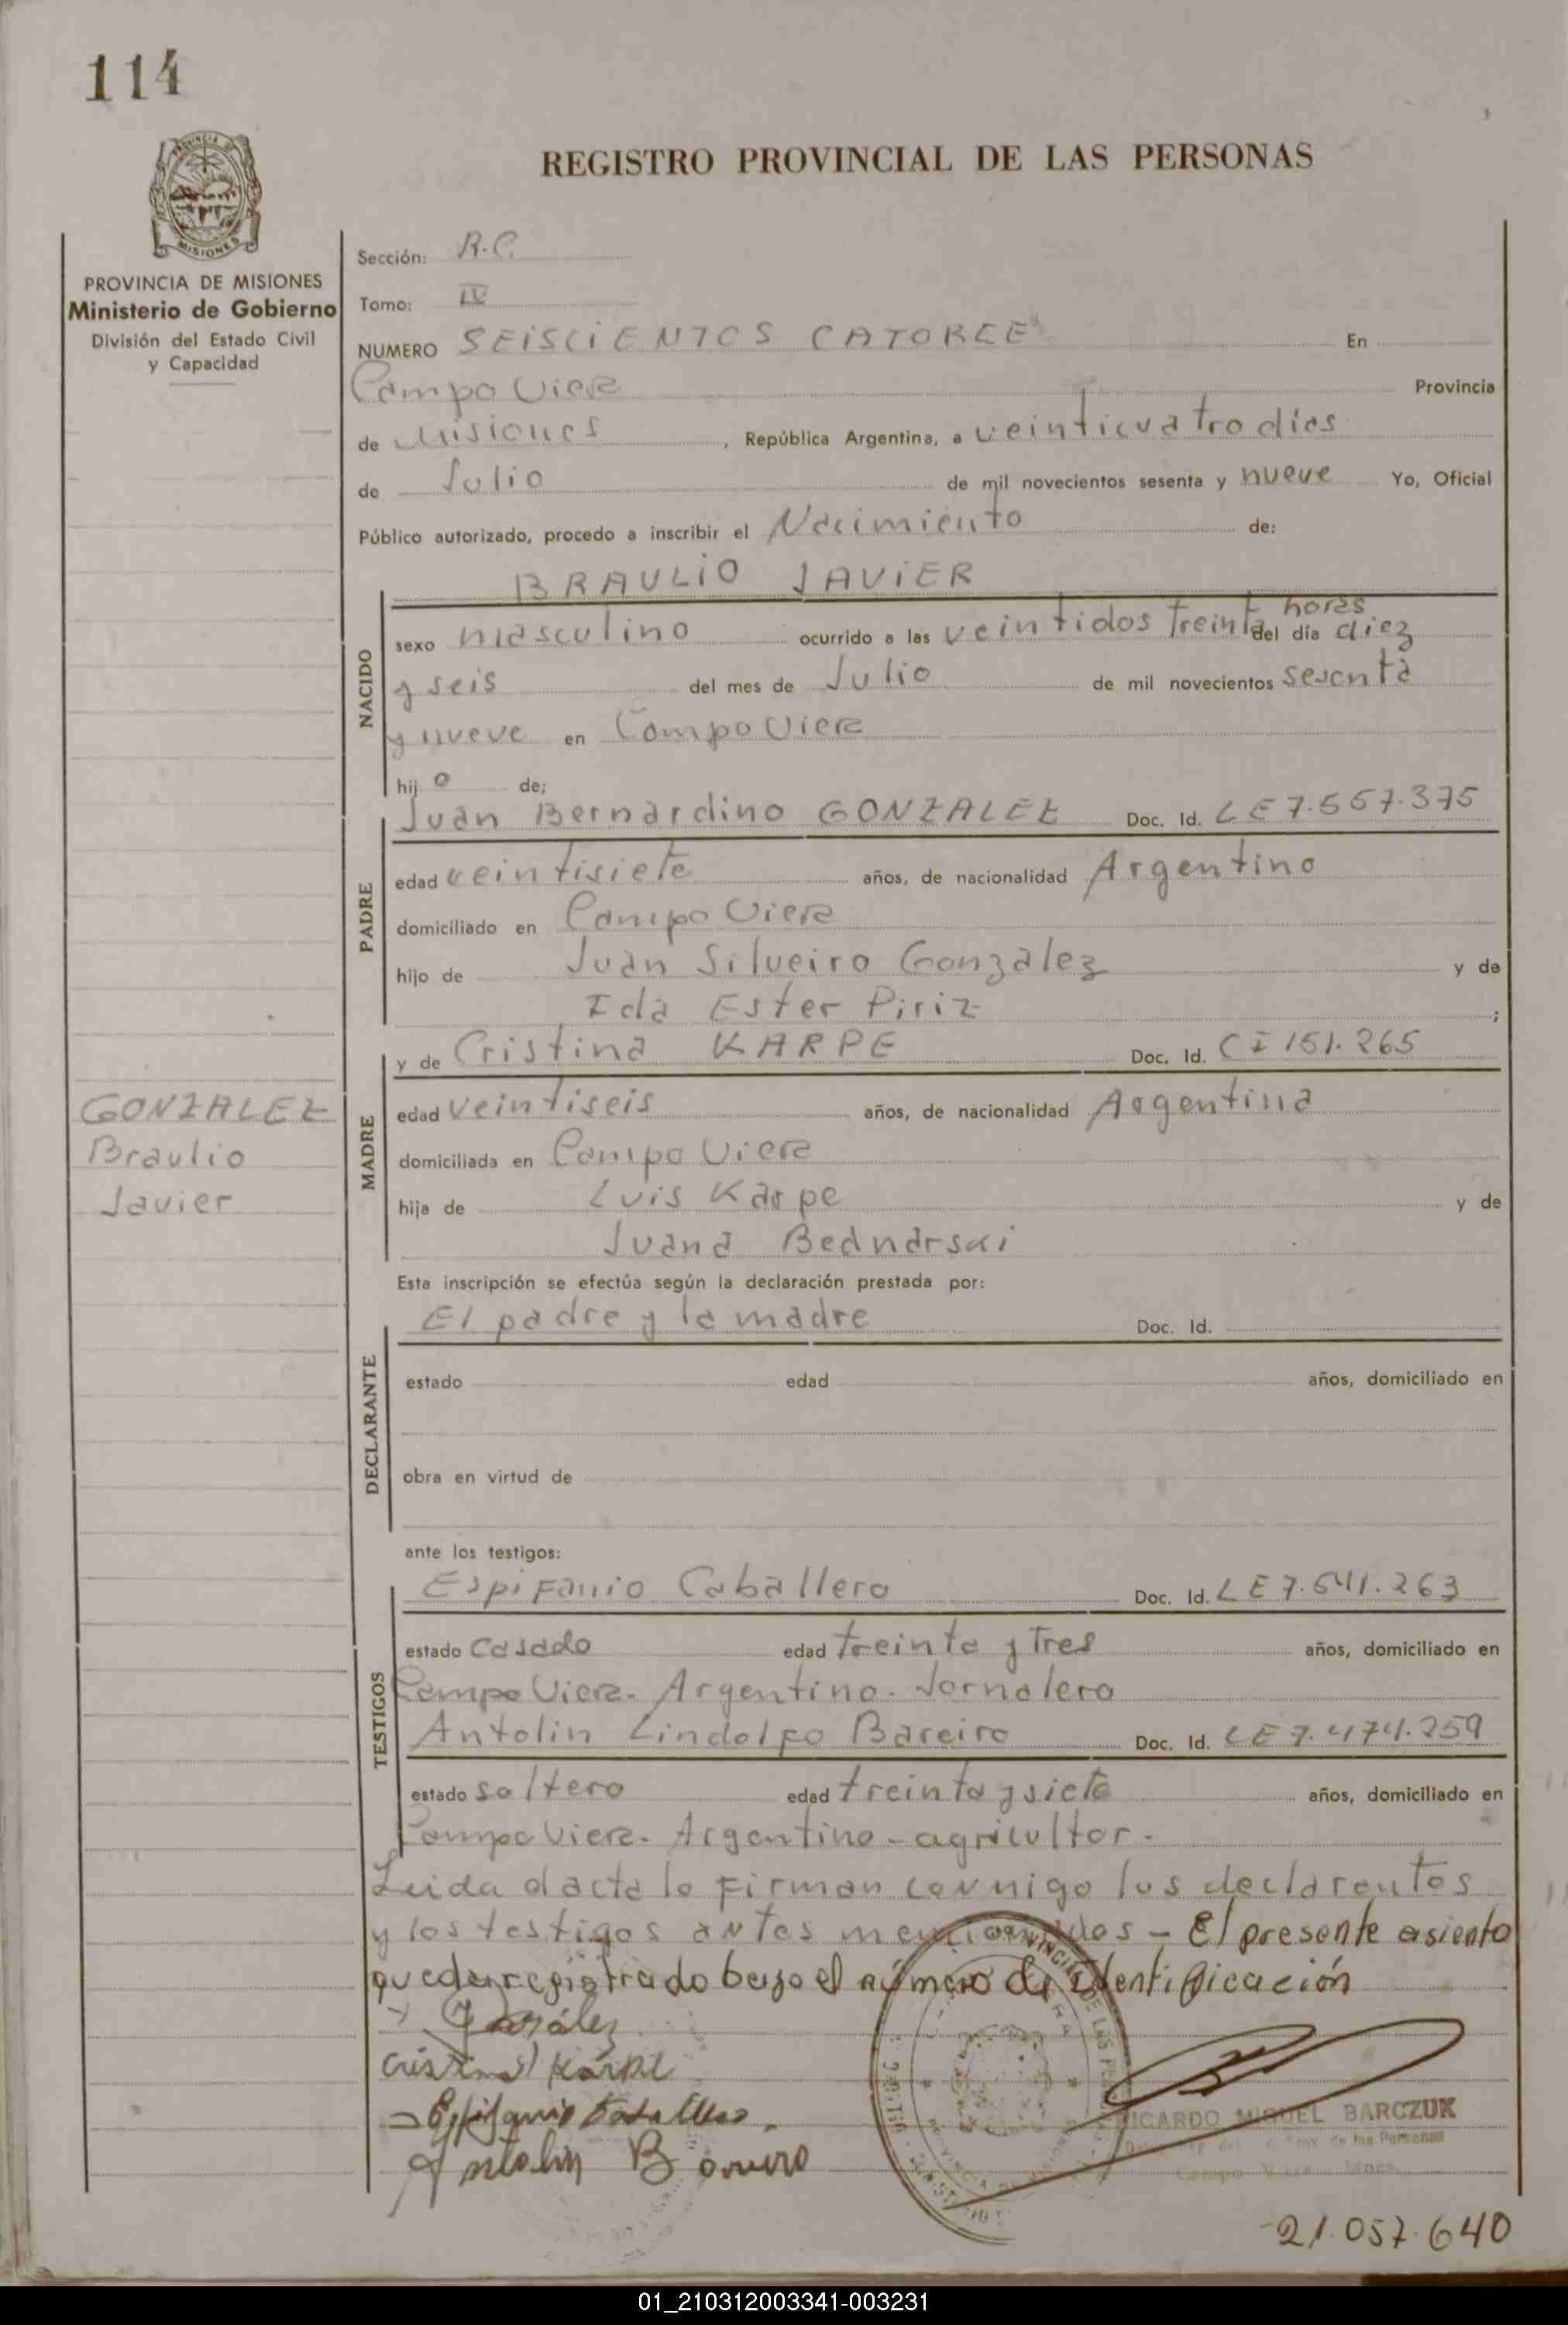 114
PROVINCIA DE
MISIONES
PROVINCIA DE MISIONES
Ministerio de Gobierno
División del Estado Civil
y Capacidad
REGISTRO PROVINCIAL DE LAS PERSONAS
Sección: R.C.
Tomo: IV
NUMERO SEISCIENTOS CATORCE En
Campo Viera Provincia
de Misiones, República Argentina, a veinticuatro días
de Julio de mil novecientos sesenta y nueve Yo, Oficial
Público autorizado, procedo a inscribir el Nacimiento de:
BRAULIO JAVIER
NACIDO
sexo masculino ocurrido a las veintidos treinta horas del día diez
y seis del mes de Julio de mil novecientos sesenta
y nueve en Campo Viera
hij o de;
Juan Bernardino GONZALEZ Doc. Id. LE 7.557.375
PADRE
edad veintisiete años, de nacionalidad Argentino
domiciliado en Campo Viera
hijo de Juan Silveiro Gonzalez y de
Ida Ester Piriz ;
y de Cristina KARPE Doc. Id. CI 151.265
MADRE
edad veintiseis años, de nacionalidad Argentina
domiciliada en Campo Viera
hija de Luis Karpe y de
Juana Bednarski
GONZALEZ
Braulio
Javier
Esta inscripción se efectúa según la declaración prestada por:
El padre y la madre Doc. Id.
DECLARANTE
estado edad años, domiciliado en
obra en virtud de
ante los testigos:
Espifanio Caballero Doc. Id. LE 7.541.263
TESTIGOS
estado casado edad treinta y tres años, domiciliado en
Campo Viera. Argentino. Jornalero
Antolin Lindolfo Bareiro Doc. Id. LE 7.474.259
estado soltero edad treinta y siete años, domiciliado en
Campo Viera. Argentino - agricultor.
Leida el acta la firman conmigo los declarantes
y los testigos antes mencionados - El presente asiento
queda registrado bajo el número de identificación
González
Cristina Karpe
Epifanio Caballero
Antolin Bareiro
RICARDO MIGUEL BARCZUK
de las Personas
Campo Viera
21.057.640
01_210312003341-003231